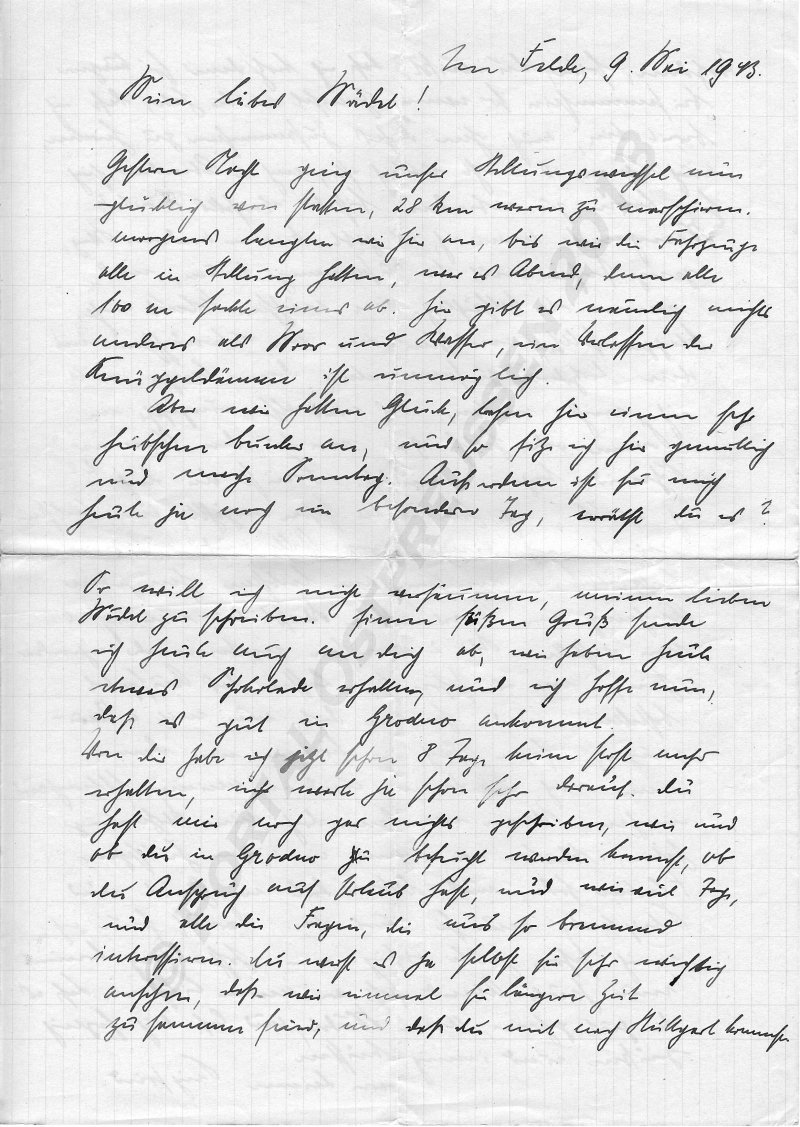 Im Felde, 9. Mai 1943.
Mein liebes Mädel!
Gestern Nacht ging unser Stellungswechsel nun
glücklich von statten, 28 km waren zu marschieren.
morgens langten wir hier an, bis wir die Fahrzeuge
alle in Stellung hatten, war es Abend, denn alle
100 m sackte eines ab. hier gibt es nämlich nichts
anderes als Moor und Wasser, ein Verlassen der
Knüppeldämme ist unmöglich.
Aber wir hatten Glück, trafen hier einen sehr
hübschen bunker an, und so sitze ich hier gemütlich
und mache Sonntag. Außerdem ist für mich
heute ja noch ein besonderer Tag, errätst du es?
So will ich nicht versäumen, meinem lieben
Mädel zu schreiben. Einen süßen Gruß sende
ich heute auch an dich ab, wir haben heute
etwas Schokolade erhalten, und ich hoffe nun,
daß es gut in Grodno ankommt
Von dir habe ich jetzt schon 8 Tage keine Post mehr
erhalten, ich warte ja schon sehr darauf. du
hast mir noch gar nichts geschrieben, wie und
ob du in Grodno besucht werden kannst, ob
du Anspruch auf Urlaub hast, und wieviel Tage,
und alle die Fragen, die uns so brennend
interessieren. du wirst es ja selbst für sehr wichtig
ansehen, daß wir einmal für längere Zeit
zusammen sind, und daß du mit nach Stuttgart kommst.
© PORTAL-OSTPREUSSEN 2013